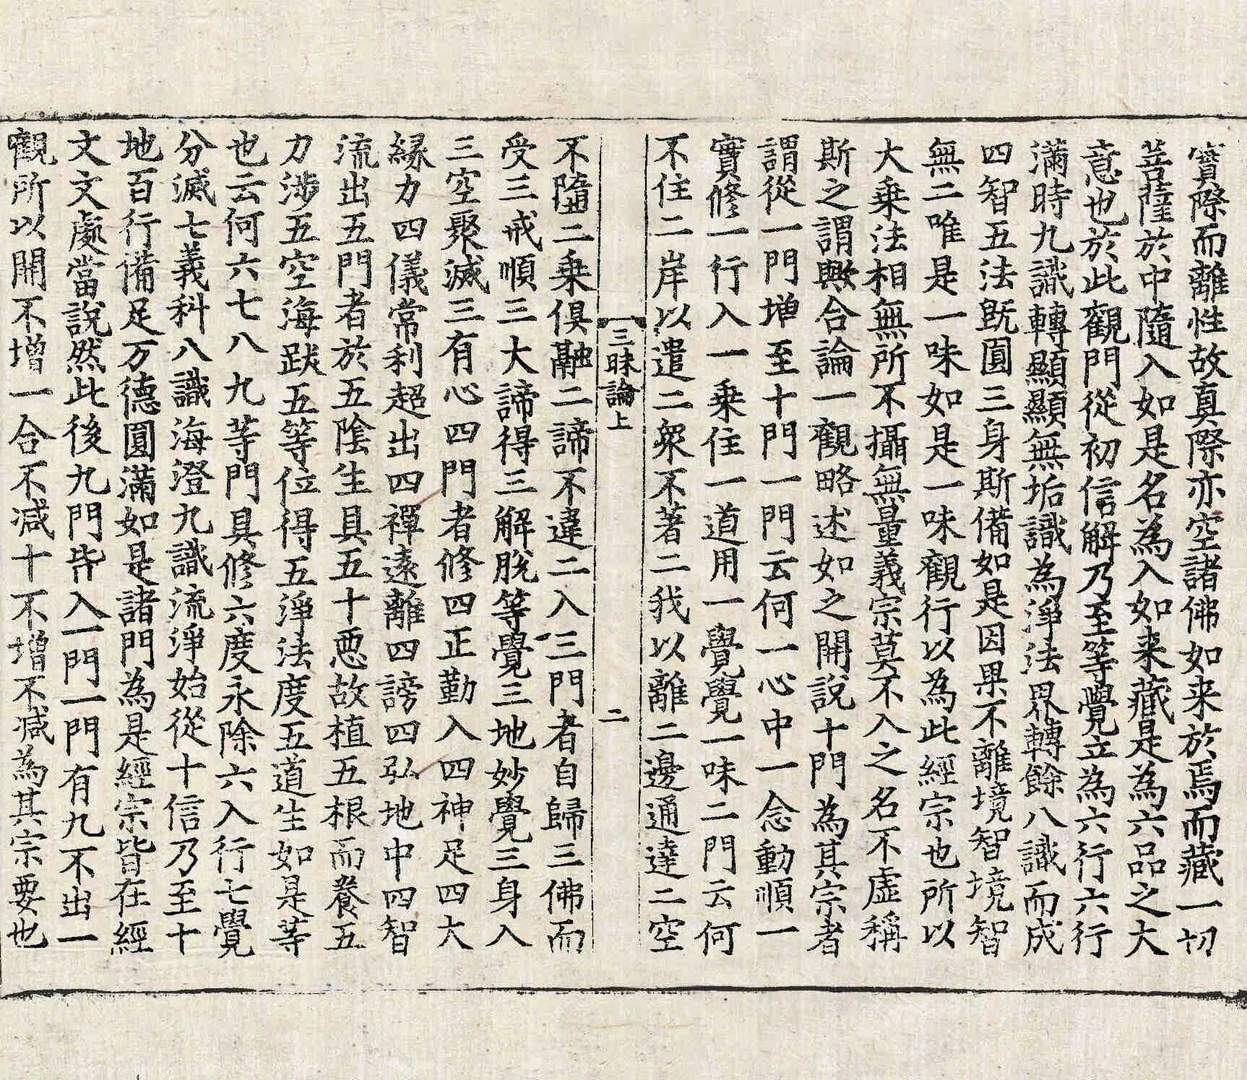 實際而離性故真際亦空諸佛如来於焉而藏一切
菩薩於中隨入如是名為入如来藏是為六品之大
意也於此觀門從初信解乃至等覺立為六行六行
滿時九識轉顯顯無垢識為淨法界轉餘八識而成
四智五法既圓三身斯備如是因果不離境智境智
無二唯是一味如是一味觀行以為此經宗也所以
大乗法相無所不攝無量義宗莫不入之名不虛稱
斯之謂歟合論一觀略述如之開說十門為其宗者
謂從一門增至十門一門云何一心中一念動順一
實修一行入一乗住一道用一覺覺一味二門云何
不住二岸以遣二衆不著二我以離二邊通達二空
三昧論上 二
不隨二乗俱融二諦不違二入三門者自歸三佛而
受三戒順三大諦得三解脫等覺三地妙覺三身入
三空聚滅三有心四門者修四正勤入四神足四大
縁力四儀常利超出四禪遠離四謗四弘地中四智
流出五門者於五陰生具五十惡故植五根而養五
力涉五空海跋五等位得五淨法度五道生如是等
也云何六七八九等門具修六度永除六入行七覺
分滅七義科八識海澄九識流淨始從十信乃至十
地百行備足万德圓滿如是諸門為是經宗皆在經
文文處當說然此後九門皆入一門一門有九不出一
觀所以開不增一合不减十不增不减為其宗要也